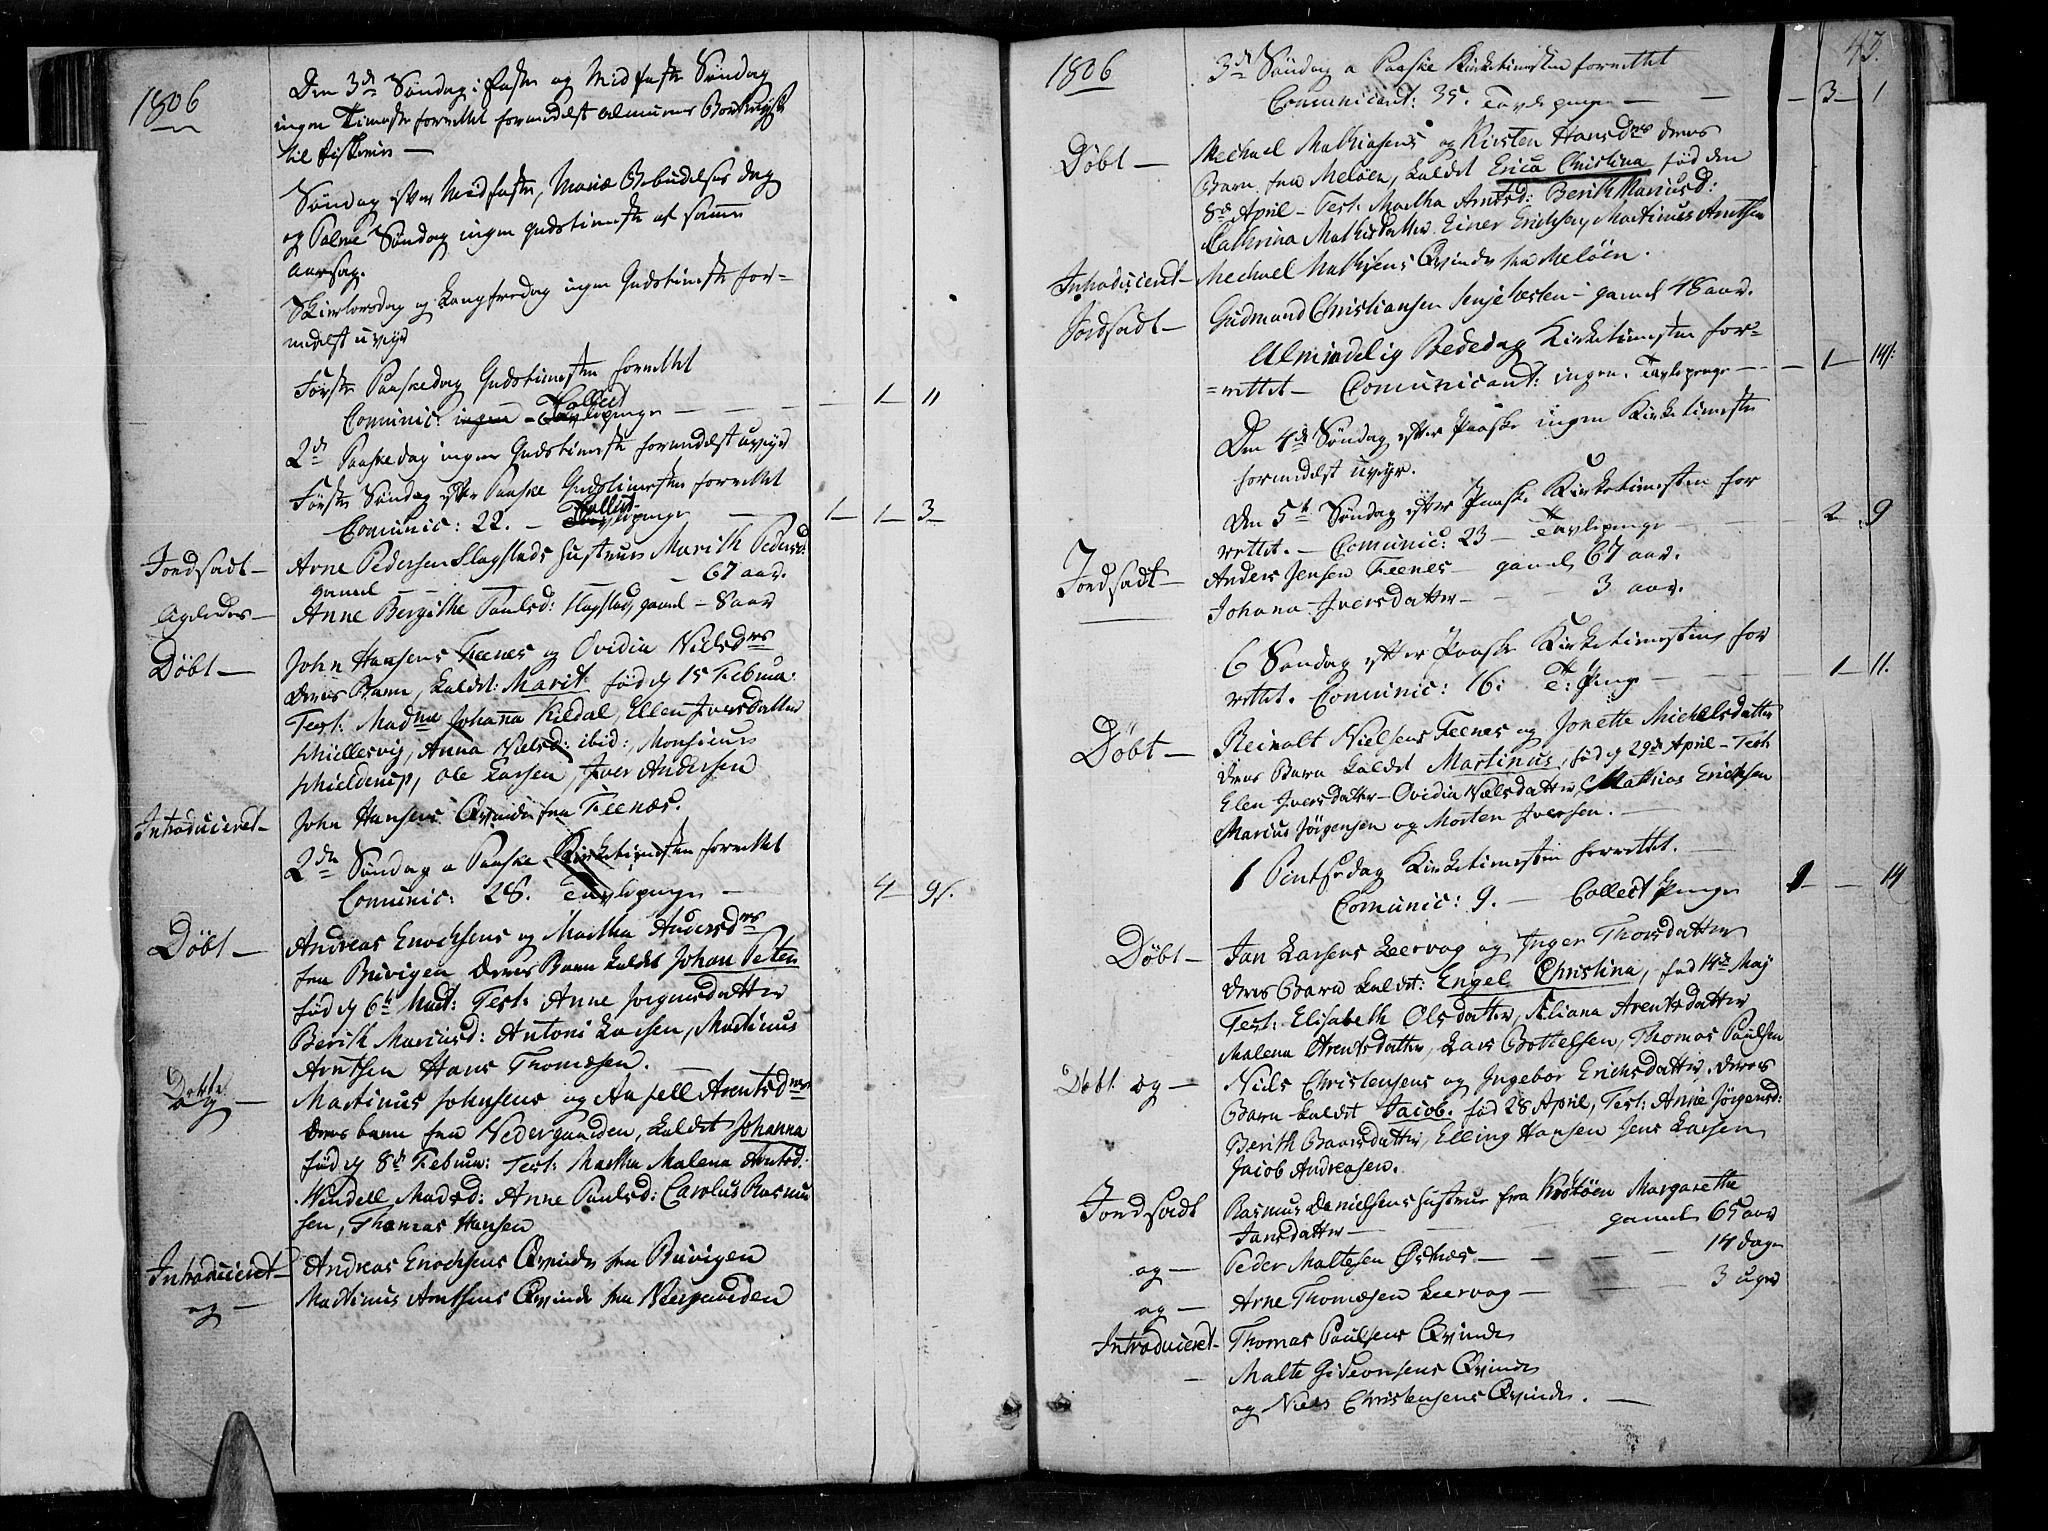 1806
Den 3de Søndag i Faste og Midfaste Søndag
ingen Tieneste forrettet formedelst almuens Bortreyse
til Fiskerie —
Søndag efter Midfaste, Mariæ Bebudelses dag
og Palme Søndag ingen Gudstieneste af samme
Aarsag.
Skiertorsdag og Langfredag ingen Gudstieneste for-
medelst uveyr
Første Paaskedag Gudstienesten forrettet
Comunic: ingen – Collect penge — — — 1 — 11
2den Paaskedag ingen Gudstieneste formedelst uveyr
Første Søndag efter Paaske Gudstienesten forrettet
Comunic: 22. – Collect penge — 1 — 1 — 3 —
Jordsadt — Arne Pedersen Slagstads hustrue Marith Pedersd:
gamel — — — 67 aar.
Ligeledes — Anne Bergithe Paulsd: Slagstad, gamel – 8 aar
Døbt — John Hansens Feenes og Ovidia Nielsdrs
deres Barn, kaldet: Marit: fød d 15 Februa:
Test: Madme Johanna Kildal, Ellen Iversdatter
Schiellesvig, Anna Nielsd: ibid: Monsieur
Schielderup, Ole Larsen, Iver Andersen
Introduceret — John Hansens Qvinde fra Feenæs.
2den Søndag a Paaske Kirketienesten forrettet
Comunic: 28. Tavlepenge — 4 — 9 s.
Døbt — Andreas Enochsens og Martha Andersdrs
fra Buvigen deres Barn kaldet Johan Peter
fød d 6te Mart: Test: Anne Jørgensdatter
Berith Mariusd: Antoni Larsen, Martinus
Arntsen Hans Thomæsen.
Døbt
og — Martinus Johnsens og Anfell Arentsdrs
deres barn fra Nedergaarden, kaldet Johanna
fød d 8de Februa: Test: Martha Malena Arntsd:
Wendell Madsd: Anne Paulsd: Carolus Rasmu
sen, Thomas Hansen
Introduceret — Andreas Enochsens Qvinde fra Buvigen
og — Martinus Arntsens Qvinde fra Nergaarden
1806
43.
3de Søndag a Paaske Kirketienesten forrettet
Comunicant: 35. Tavlepenge — — — 3 — 1
Døbt — Mechael Mathiasens og Kirsten Hansdrs deres
Barn fra Meløen, kaldet Erica Christina fød den
8de April – Test: Martha Arntsd: Berith Mariusd:
Cathrina Mathisdatter Einer Erichsen, Martinus Arntsen
Introduceret — Mechael Mathisens Qvinde fra Meløen.
Jordsadt — Gudmand Christiansen Senjehesten – gamel 48 aar.
Almindelig Bededag Kirketienesten for-
=rettet — Comunicant: ingen. Tavlepenge — — 1 — 14 s:
Den 4de Søndag efter Paaske ingen Kirketieneste
formedelst uveyr.
Den 5te Søndag efter Paaske Kirketienesten for
rettet. — Comunic: 23 — Tavlepenge — — 2 . 9
Jordsadt — Anders Jensen Feenes — gamel 67 aar.
Johana Iversdatter — — — 3 aar.
6 Søndag efter Paaske Kirketienesten for
rettet. Comunic: 16: T: Penge — — — 1 — 11.
Døbt — Reinalt Nielsens Feenes og Jonetta Michelsdatter
deres Barn kaldet Martinus, fød d 29de April – Test:
Elen Iversdatter – Ovidia Nielsdatter, Mathias Erichsen
Marius Jørgensen og Morten Iversen. —
1 Pintsedag Kirketienesten forrettet. —
Comunic: 9. — Collect Penge 1 — — 14
Døbt — Jan Larsens Leervag og Inger Thorsdatter
deres Barn kaldet: Engel Christina, fød 14de Maj
Test: Elisabeth Olsdatter, Iiliana Arentsdatter
Malena Arentsdatter, Lars Bottelsen, Thomas Paulsen
Døbt og — Niels Christensens og Ingebor Erichsdatter, deres
Barn kaldet Jacob. fød 28 April, Test: Anne Jørgensd:
Berith Baarsdatter, Elling Hansen Jens Larsen
Jacob Andreasen.
Jordsadt Rasmus Danielsens hustrue fra Kostøen Margarethe
Jansdatter — — — gamel 65 aar
og — Peder Maltesen Østnes — — — — 14 dage
og — Arne Thomesen Leervag — — — 3 uger
Introduceret — Thomas Paulsens Qvinde
— Malte Gideonsens Qvinde
og Niels Christensens Qvinde. —